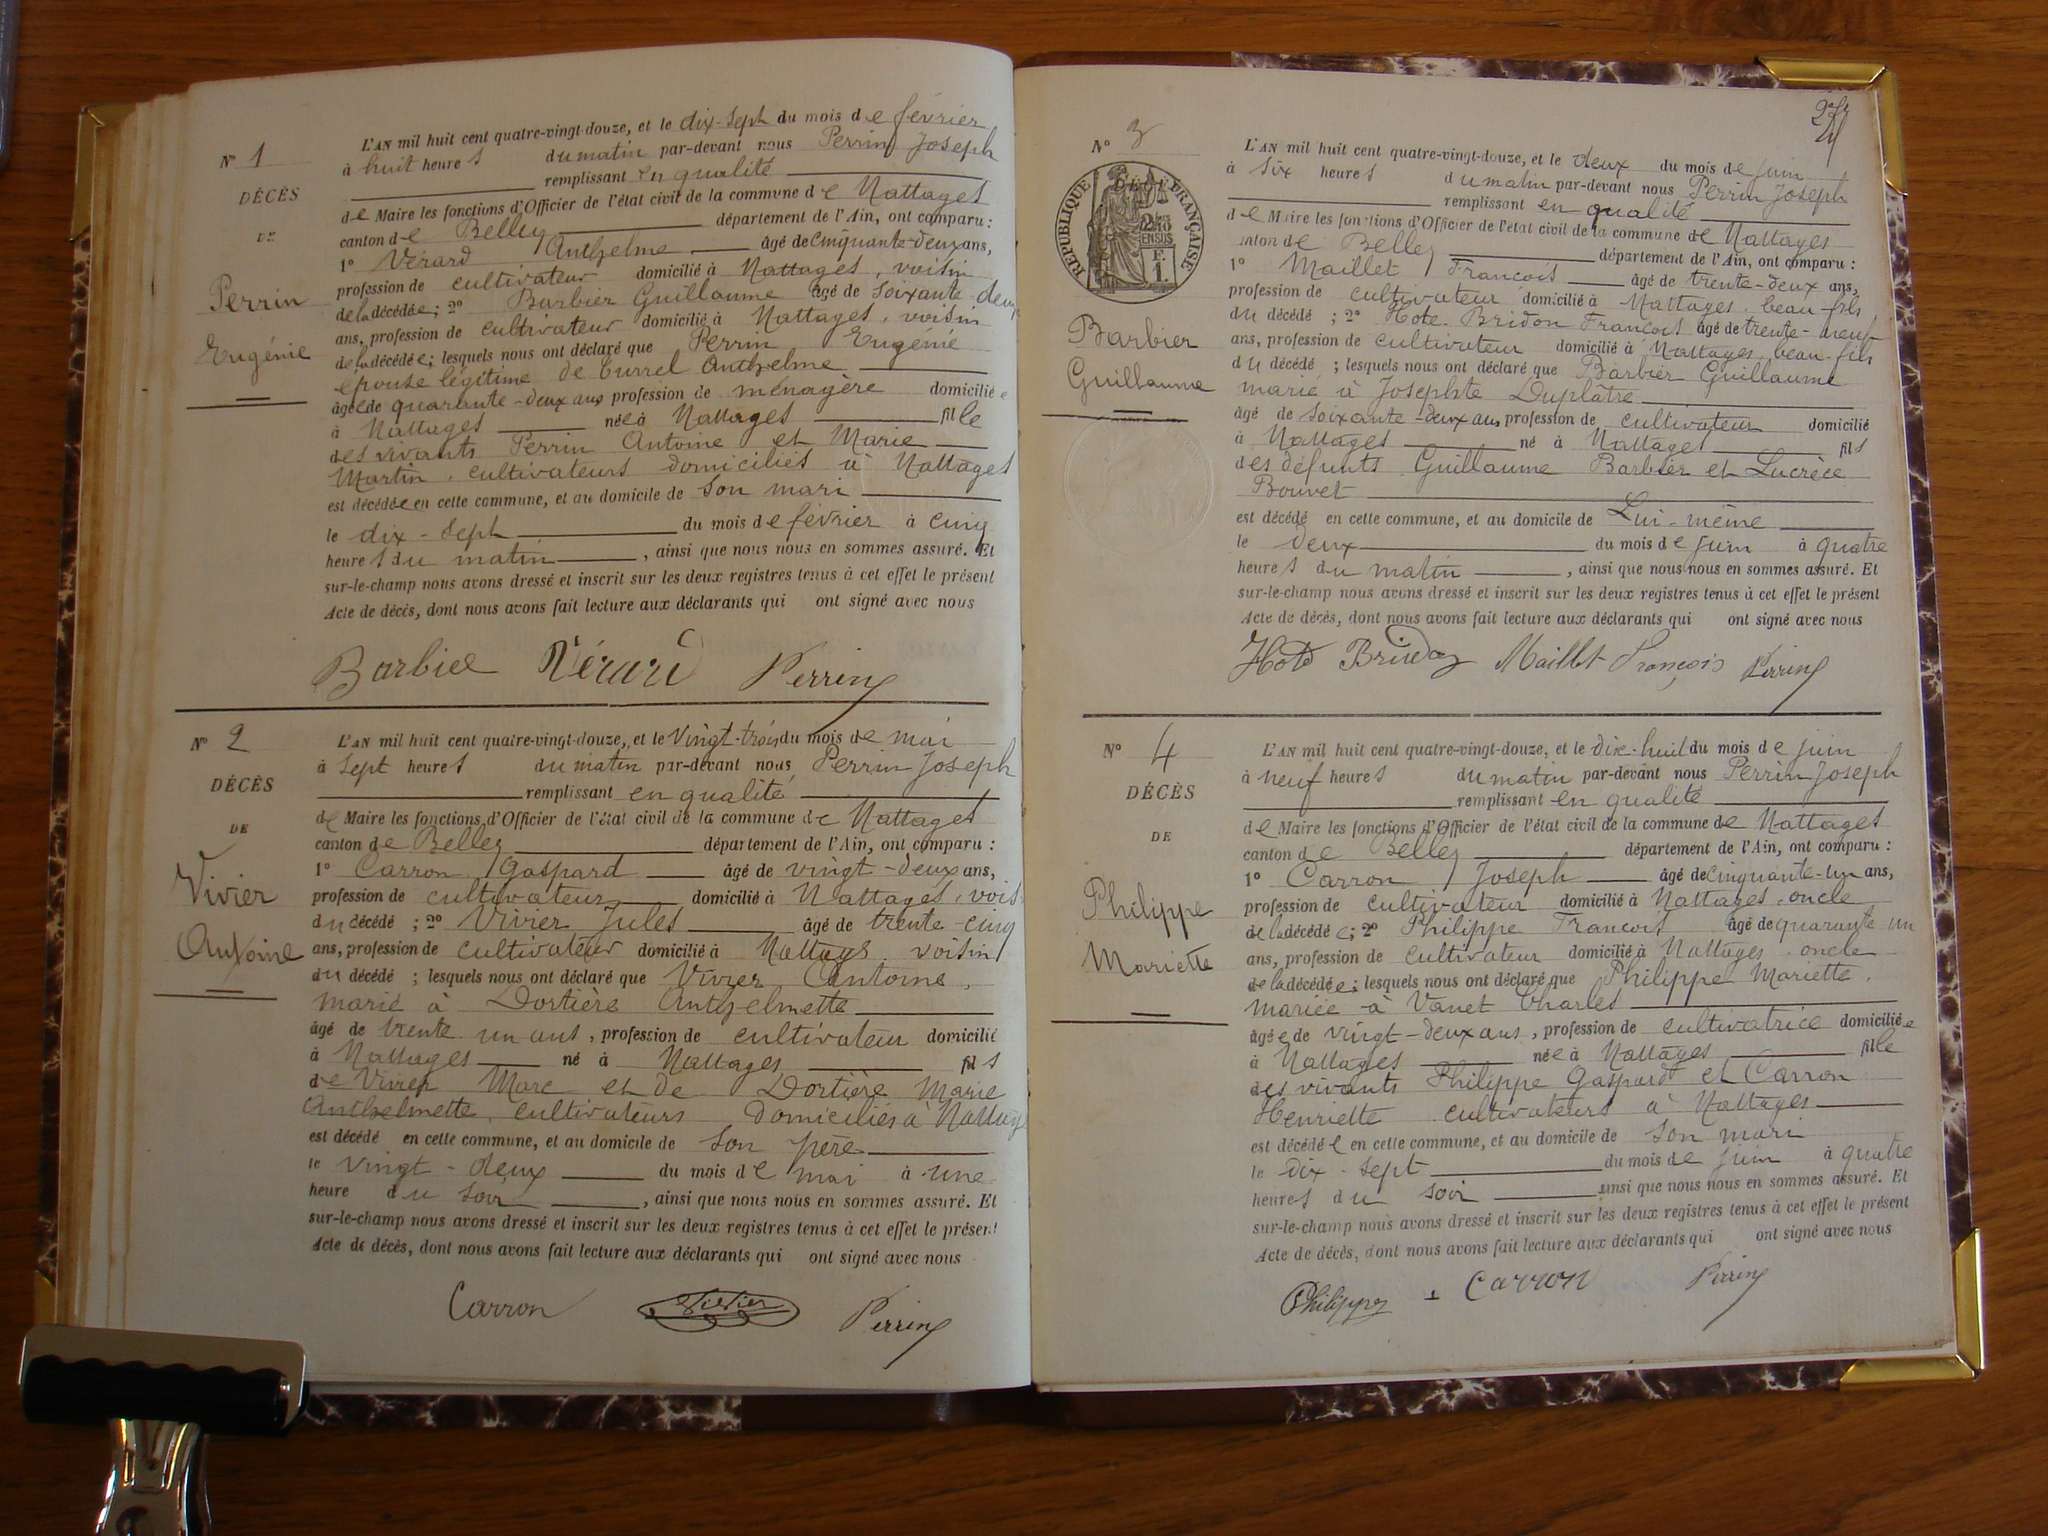 N° 1
DÉCÈS
DE
Perrin
Eugénie
L'AN mil huit cent quatre-vingt-douze, et le dix-sept du mois de février
à huit heures du matin par-devant nous Perrin Joseph
remplissant en qualité
de Maire les fonctions d'Officier de l'état civil de la commune de Nattages
canton de Belley département de l'Ain, ont comparu :
1° Vérard Anthelme âgé de cinquante-deux ans,
profession de cultivateur domicilié à Nattages, voisin
de la décédée ; 2° Barbier Guillaume âgé de soixante-deux
ans, profession de cultivateur domicilié à Nattages, voisin
de la décédée ; lesquels nous ont déclaré que Perrin Eugénie
épouse légitime de Anthelme
âgée de quarante-deux ans profession de ménagère domiciliée
à Nattages née à Nattages fille
des vivants Perrin Antoine et Marie
Martin, cultivateurs domiciliés à Nattages
est décédée en cette commune, et au domicile de son mari
le dix-sept du mois de février à cinq
heures du matin, ainsi que nous nous en sommes assuré. Et
sur-le-champ nous avons dressé et inscrit sur les deux registres tenus à cet effet le présent
Acte de décès, dont nous avons fait lecture aux déclarants qui ont signé avec nous
Barbier Vérard Perrin
N° 2
DÉCÈS
DE
Vivier
Antoine
L'AN mil huit cent quatre-vingt-douze, et le vingt-trois du mois de mai
à sept heures du matin par-devant nous Perrin Joseph
remplissant en qualité
de Maire les fonctions d'Officier de l'état civil de la commune de Nattages
canton de Belley département de l'Ain, ont comparu :
1° Carron Gaspard âgé de vingt-deux ans,
profession de cultivateur domicilié à Nattages, vois
du décédé ; 2° Vivier Jules âgé de trente-cinq
ans, profession de cultivateur domicilié à Nattages, voisin
du décédé ; lesquels nous ont déclaré que Vivier Antoine,
marié à Dortière Anthelmette
âgé de trente un ans, profession de cultivateur domicilié
à Nattages né à Nattages fils
de Vivier Marc et de Dortière Marie
Anthelmette, cultivateurs domiciliés à Nattages
est décédé en cette commune, et au domicile de son père
le vingt-deux du mois de mai à une
heure du soir, ainsi que nous nous en sommes assuré. Et
sur-le-champ nous avons dressé et inscrit sur les deux registres tenus à cet effet le présent
Acte de décès, dont nous avons fait lecture aux déclarants qui ont signé avec nous
Carron Vivier Perrin
N° 3
RÉPUBLIQUE FRANÇAISE
Barbier
Guillaume
L'AN mil huit cent quatre-vingt-douze, et le deux du mois de juin
à six heures du matin par-devant nous Perrin Joseph
remplissant en qualité
de Maire les fonctions d'Officier de l'état civil de la commune de Nattages
canton de Belley département de l'Ain, ont comparu :
1° Maillet François âgé de trente-deux ans,
profession de cultivateur domicilié à Nattages, beau-fils
du décédé ; 2° Hote-Bridon François âgé de trente-neuf
ans, profession de cultivateur domicilié à Nattages beau-fils
du décédé ; lesquels nous ont déclaré que Barbier Guillaume
marié à Josephte Duplâtre
âgé de soixante-deux ans profession de cultivateur domicilié
à Nattages né à Nattages fils
des défunts Guillaume Barbier et Lucrèce
Bouvet
est décédé en cette commune, et au domicile de Lui-même
le deux du mois de juin à quatre
heures du matin, ainsi que nous nous en sommes assuré. Et
sur-le-champ nous avons dressé et inscrit sur les deux registres tenus à cet effet le présent
Acte de décès, dont nous avons fait lecture aux déclarants qui ont signé avec nous
Hote Bridon Maillet François Perrin
N° 4
DÉCÈS
DE
Philippe
Mariette
L'AN mil huit cent quatre-vingt-douze, et le dix-huit du mois de juin
à neuf heures du matin par-devant nous Perrin Joseph
remplissant en qualité
de Maire les fonctions d'Officier de l'état civil de la commune de Nattages
canton de Belley département de l'Ain, ont comparu :
1° Carron Joseph âgé de cinquante-un ans,
profession de cultivateur domicilié à Nattages, oncle
de la décédée ; 2° Philippe François âgé de quarante un
ans, profession de cultivateur domicilié à Nattages, oncle
de la décédée ; lesquels nous ont déclaré que Philippe Mariette,
mariée à Vanet Charles
âgée de vingt-deux ans, profession de cultivatrice domiciliée
à Nattages née à Nattages fille
des vivants Philippe Gaspard et Carron
Henriette cultivateurs à Nattages
est décédée en cette commune, et au domicile de son mari
le dix-sept du mois de juin à quatre
heures du soir ainsi que nous nous en sommes assuré. Et
sur-le-champ nous avons dressé et inscrit sur les deux registres tenus à cet effet le présent
Acte de décès, dont nous avons fait lecture aux déclarants qui ont signé avec nous
Philippe Carron Perrin